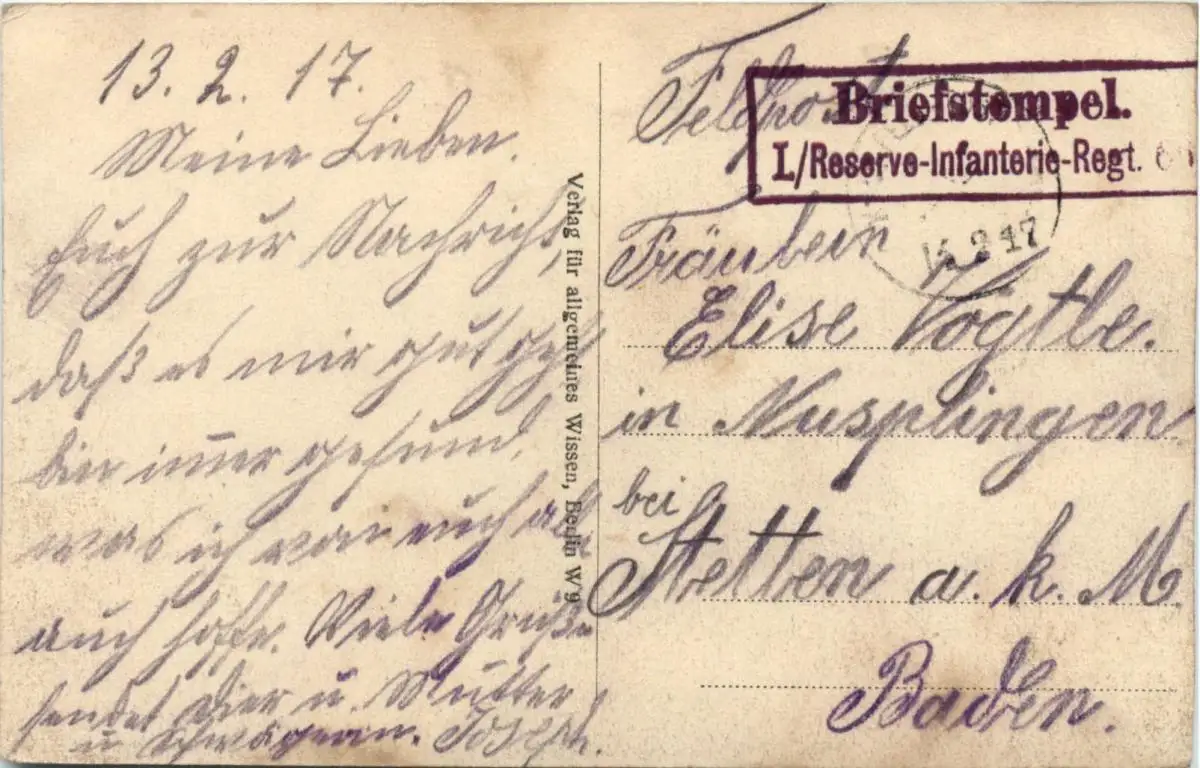 13. 2. 17.
Meine Lieben.
Euch zur Nachricht,
daß es mir gut geht
bin im̄er gesund,
was ich von euch all
auch hoffe. Viele Grüße
sendet Dier u. Mutter
u Schwägerin. Joseph.
Verlag für allgemeines Wissen, Berlin W 9
Feldpost
Briefstempel.
I./Reserve-Infanterie-Regt.
14.2.17
Fräulein
Elise Vögtle.
in Nusplingen
bei
Stetten a. k. M.
Baden.